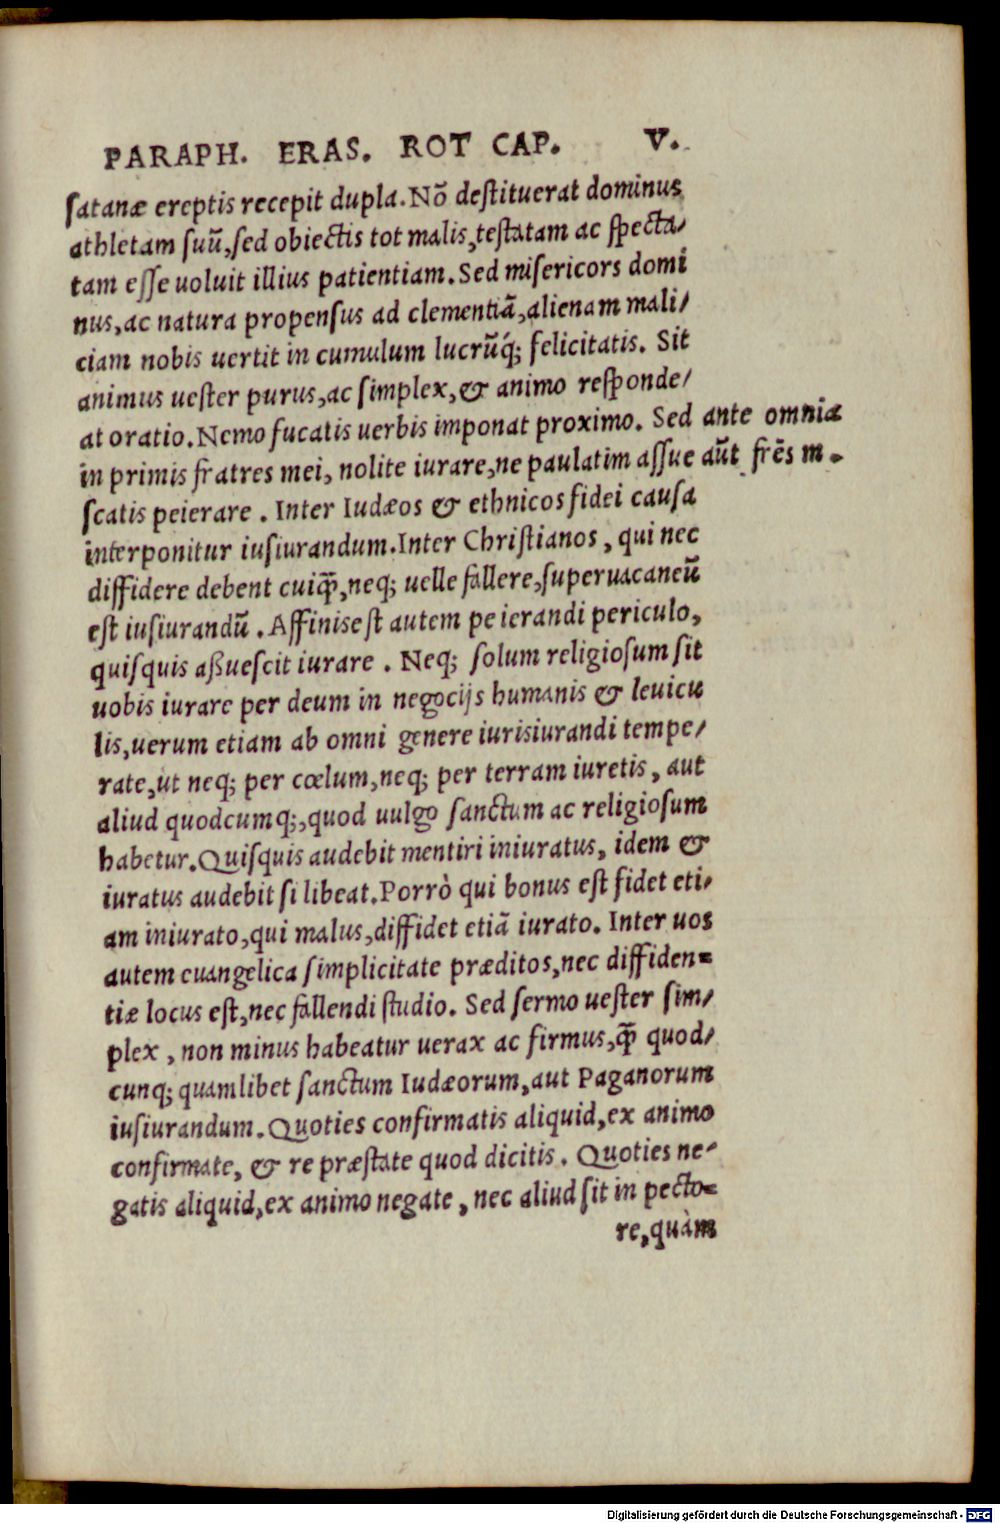 PARAPH. ERAS. ROT CAP. V.
satanæ ereptis recepit dupla. Nõ destituerat dominus
athletam suũ, sed obiectis tot malis, testatam ac specta/
tam esse uoluit illius patientiam. Sed misericors domi
nus, ac natura propensus ad clementiã, alienam mali/
ciam nobis uertit in cumulum lucrũq́; felicitatis. Sit
animus uester purus, ac simplex, & animo responde/
at oratio. Nemo fucatis uerbis imponat proximo. Sed
ante omnia
in primis fratres mei, nolite iurare, ne paulatim assue
aũt frẽs m.
scatis peierare. Inter Iudæos & ethnicos fidei causa
interponitur iusiurandum. Inter Christianos, qui nec
diffidere debent cuiq̃, neq; uelle fallere, superuacaneũ
est iusiurandũ. Affinis est autem peierandi periculo,
quisquis aßuescit iurare. Neq; solum religiosum sit
uobis iurare per deum in negocijs humanis & leuicu
lis, uerum etiam ab omni genere iurisiurandi tempe/
rate, ut neq; per cœlum, neq; per terram iuretis, aut
aliud quodcumq;, quod uulgo sanctum ac religiosum
habetur. Quisquis audebit mentiri iniuratus, idem &
iuratus audebit si libeat. Porrò qui bonus est fidet eti/
am iniurato, qui malus, diffidet etiã iurato. Inter uos
autem euangelica simplicitate præditos, nec diffiden=
tiæ locus est, nec fallendi studio. Sed sermo uester sim/
plex, non minus habeatur uerax ac firmus, q̃ quod/
cunq; quamlibet sanctum Iudæorum, aut Paganorum
iusiurandum. Quoties confirmatis aliquid, ex animo
confirmate, & re præstate quod dicitis. Quoties ne/
gatis aliquid, ex animo negate, nec aliud sit in pecto=
re, quàm
Digitalisierung gefördert durch die Deutsche Forschungsgemeinschaft - DFG